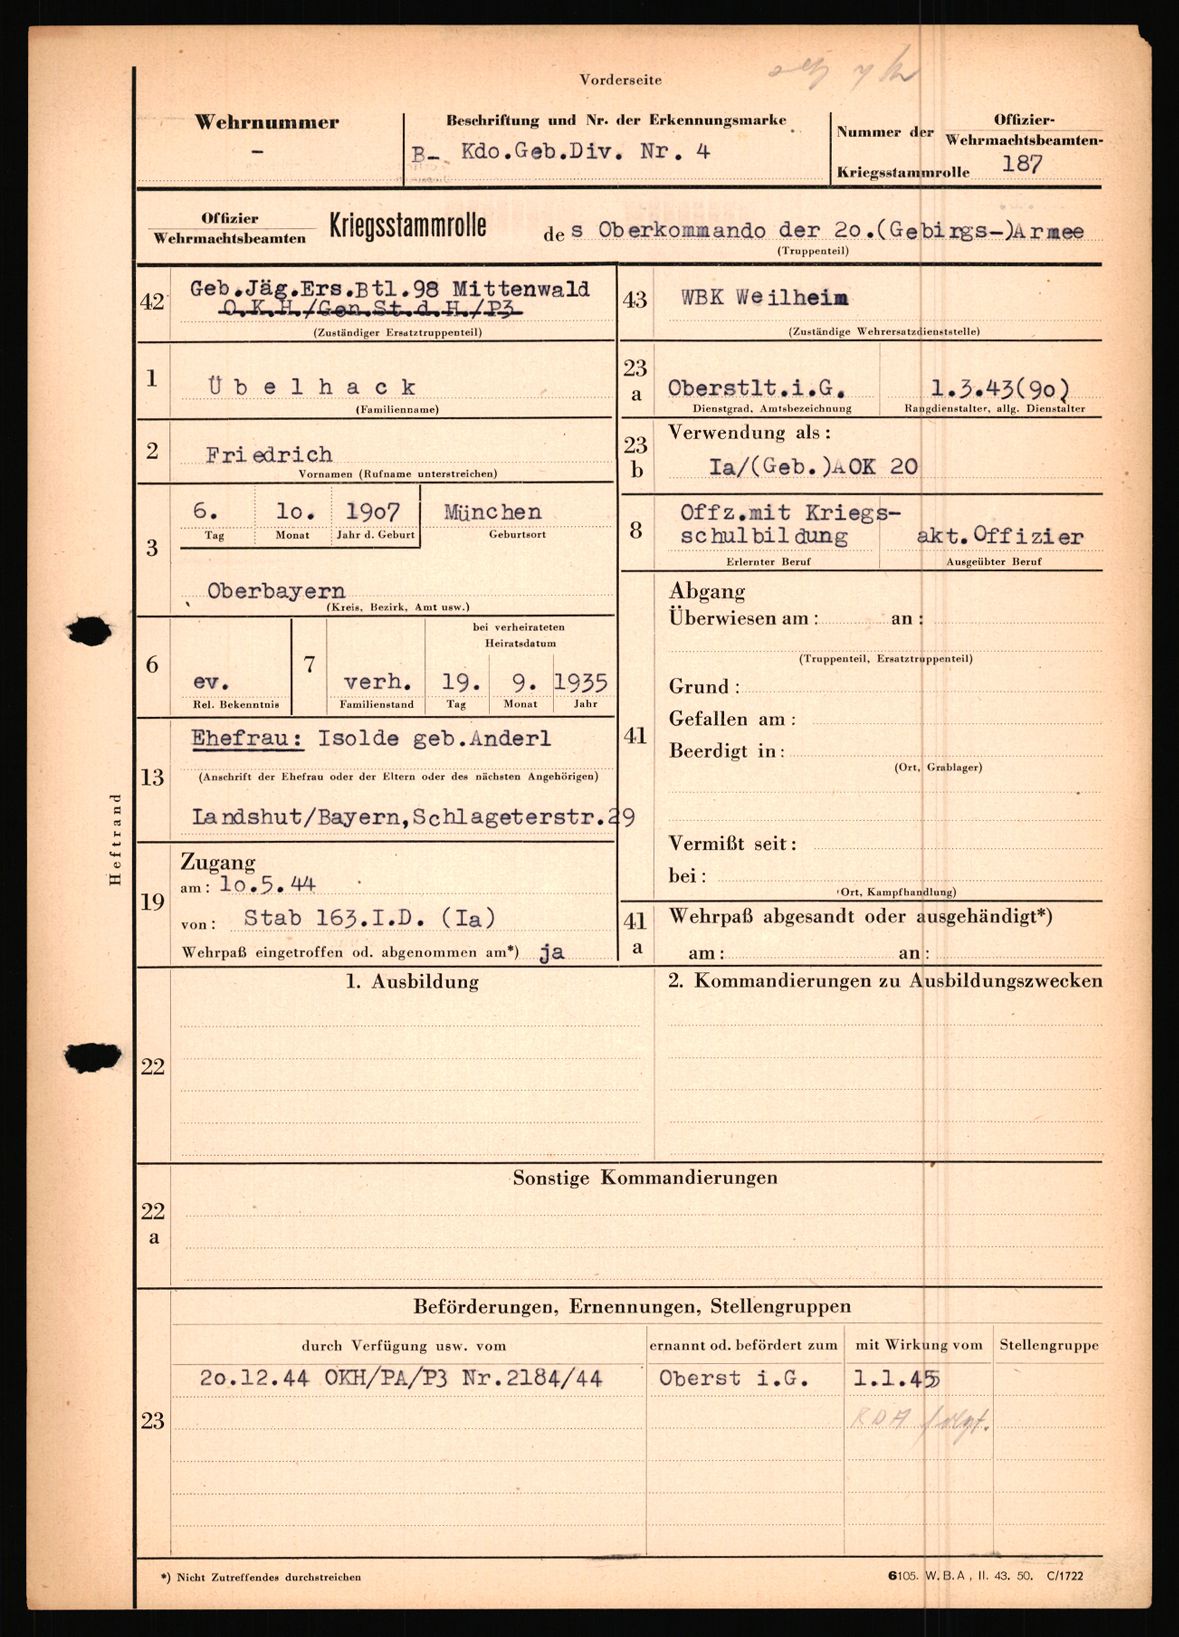 Vorderseite
Wehrnummer
–
Beschriftung und Nr. der Erkennungsmarke
B-. Kdo.Geb.Div. Nr. 4
Nummer der Offizier- Wehrmachtsbeamten- Kriegsstammrolle
187
Offizier
Wehrmachtsbeamten
Kriegsstammrolle des Oberkommando der 2o.(Gebirgs-)Armee
(Truppenteil)
42
Geb.Jäg.Ers.Btl.98 Mittenwald
O.K.H./Gen.St.d.H./P3
(Zuständiger Ersatztruppenteil)
43
WBK Weilheim
(Zuständige Wehrersatzdienststelle)
1
Übelhack
(Familienname)
23 a
Oberstlt.i.G.
1.3.43(9o)
Dienstgrad, Amtsbezeichnung
Rangdienstalter, allg. Dienstalter
2
Friedrich
Vornamen (Rufname unterstreichen)
23 b
Verwendung als:
Ia/(Geb.)AOK 20
3
6. 1o. 19o7 München
Tag Monat Jahr d. Geburt Geburtsort
Oberbayern
(Kreis, Bezirk, Amt usw.)
8
Offz.mit Kriegs-
schulbildung
akt.Offizier
Erlernter Beruf
Ausgeübter Beruf
6
ev.
Rel. Bekenntnis
7
bei verheirateten
Heiratsdatum
verh. 19. 9. 1935
Familienstand Tag Monat Jahr
13
Ehefrau: Isolde geb.Anderl
(Anschrift der Ehefrau oder der Eltern oder des nächsten Angehörigen)
Landshut/Bayern,Schlageterstr.29
19
Zugang
am: 1o.5.44
von: Stab 163.I.D. (Ia)
Wehrpaß eingetroffen od. abgenommen am*) ja
41
Abgang
Überwiesen am: an:
(Truppenteil, Ersatztruppenteil)
Grund:
Gefallen am:
Beerdigt in:
(Ort, Grablager)
Vermißt seit:
bei:
(Ort, Kampfhandlung)
41 a
Wehrpaß abgesandt oder ausgehändigt*)
am: an:
Heftrand
22
1. Ausbildung
2. Kommandierungen zu Ausbildungszwecken
22 a
Sonstige Kommandierungen
23
Beförderungen, Ernennungen, Stellengruppen
durch Verfügung usw. vom
ernannt od. befördert zum
mit Wirkung vom
Stellengruppe
2o.12.44 OKH/PA/P3 Nr.2184/44
Oberst i.G.
1.1.45
RDA folgt.
*) Nicht Zutreffendes durchstreichen
6105. W.B.A, II. 43. 50. C/1722